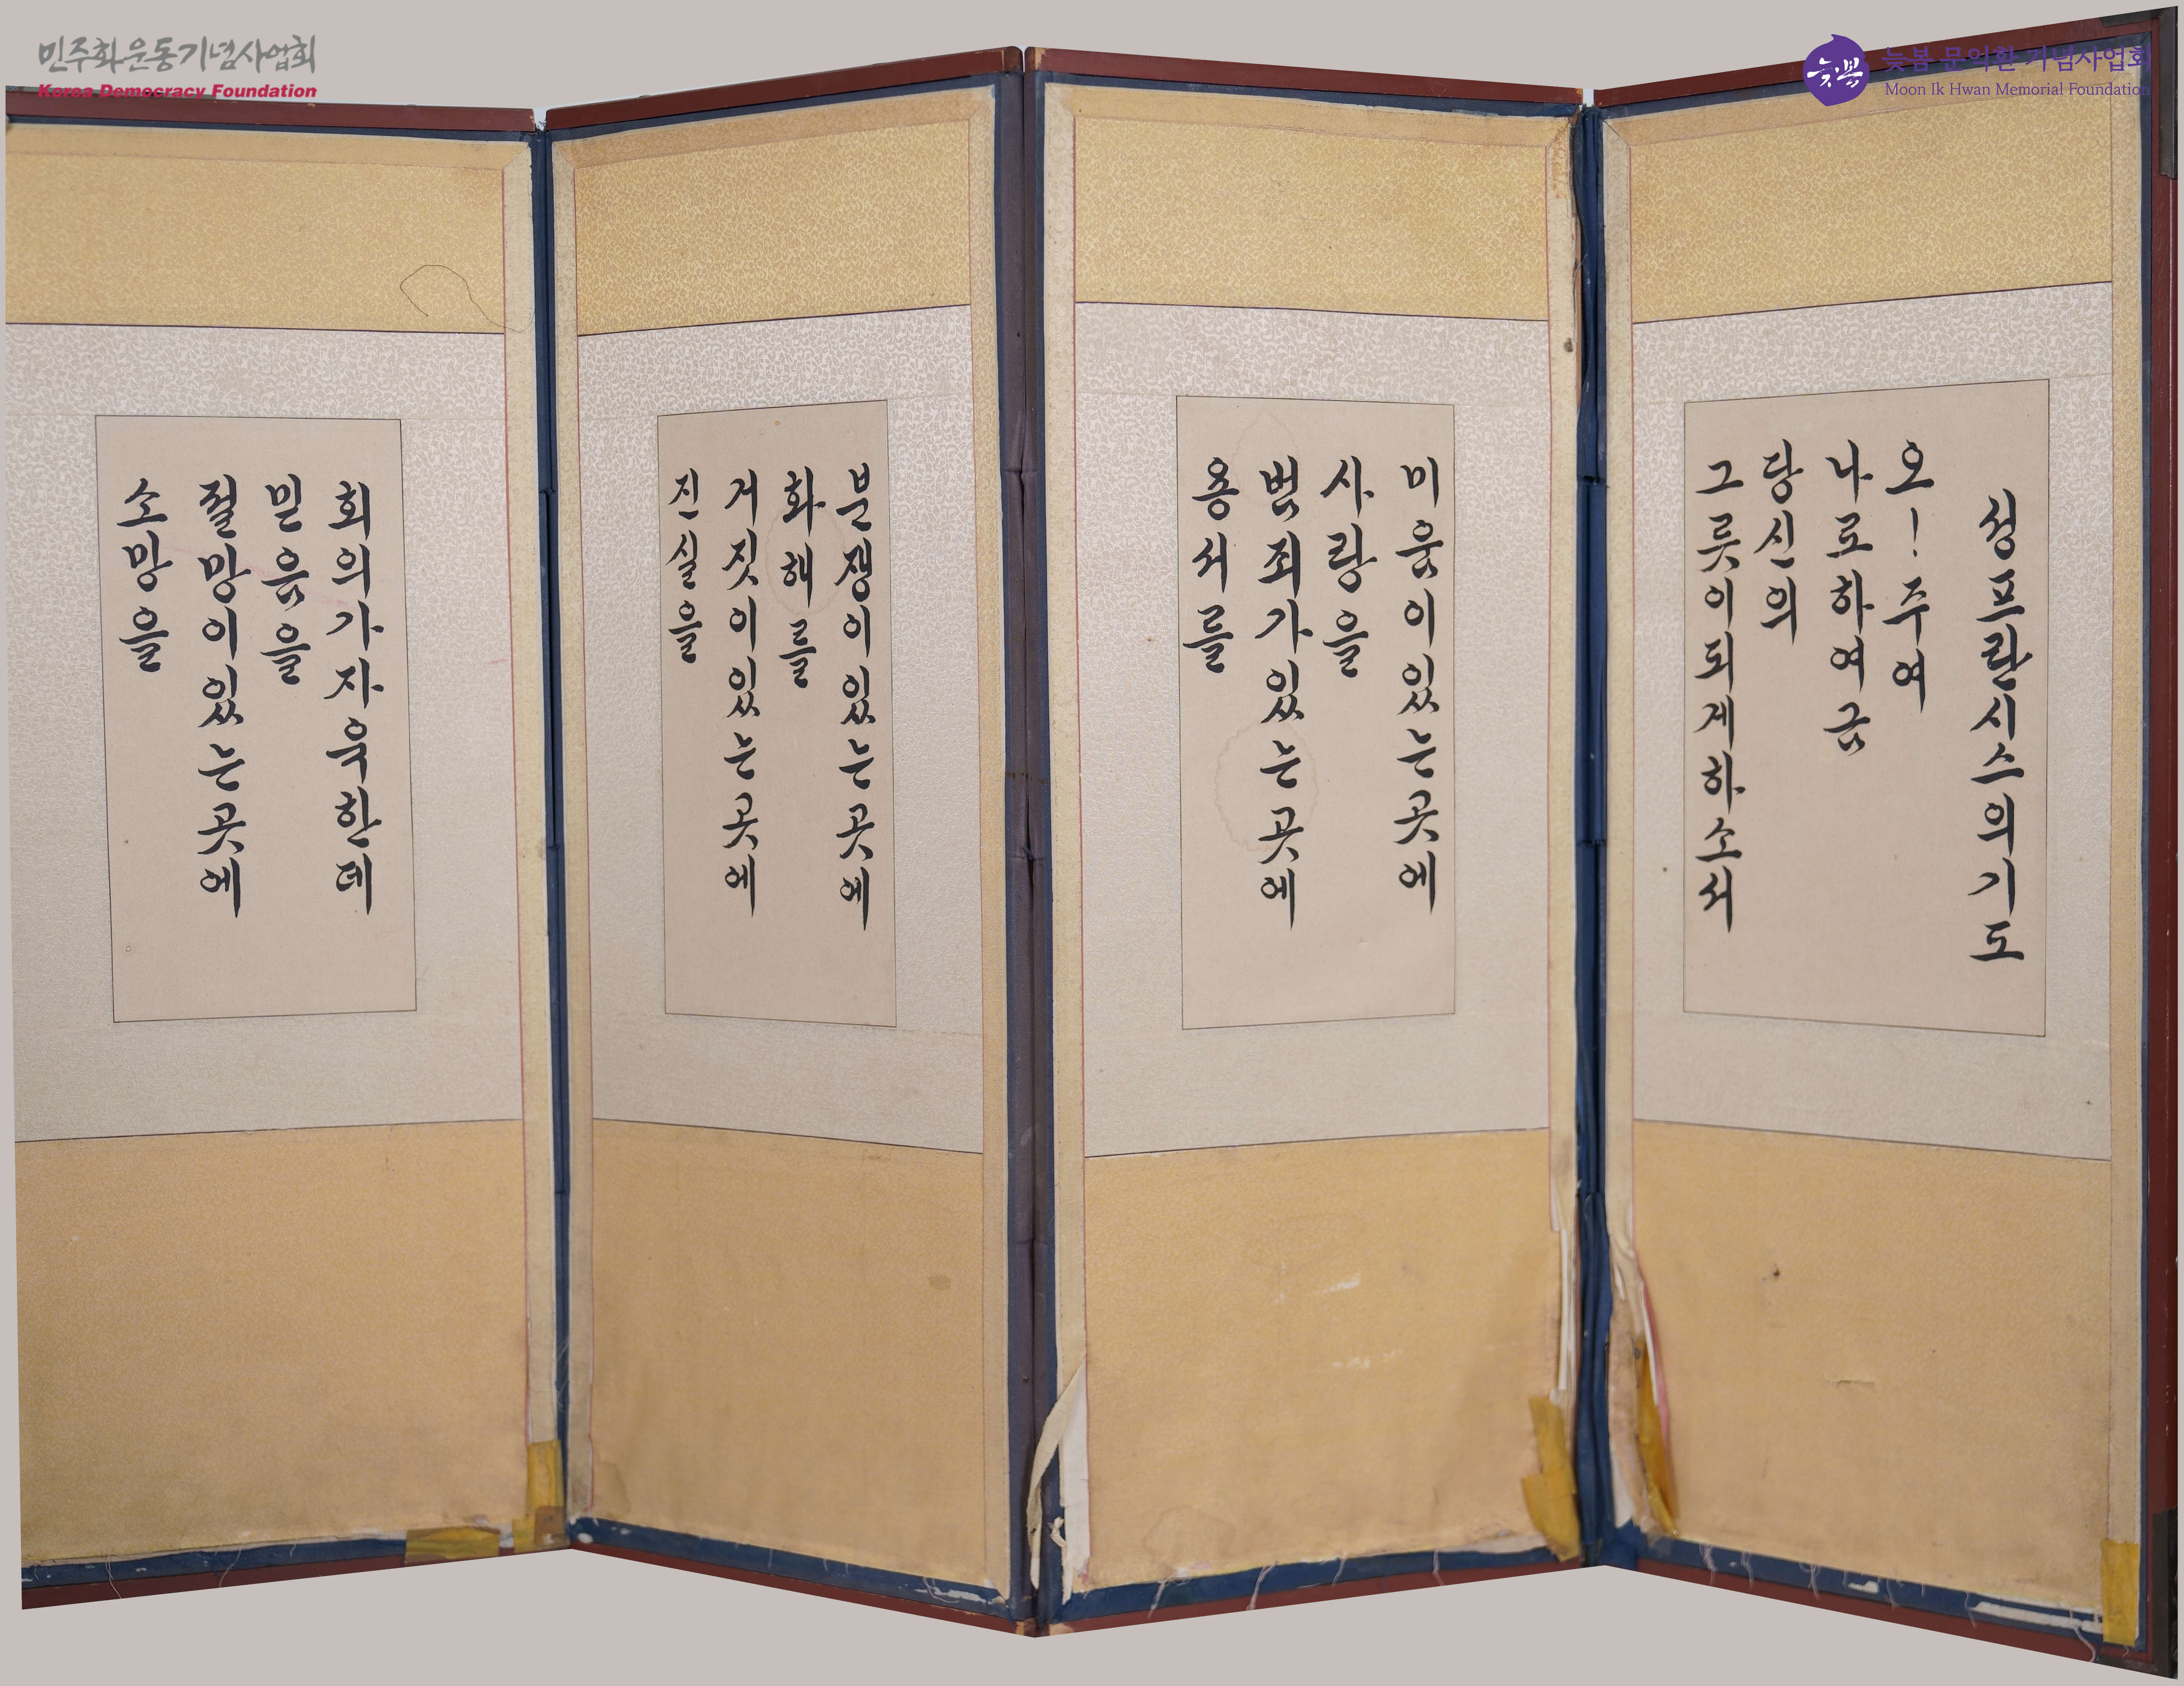 민주화운동기념사업회
Korea Democracy Foundation
늦봄
늦봄 문익환 기념사업회
Moon Ik Hwan Memorial Foundation
성프란시스의기도
오!주여
나로하여금
당신의
그릇이되게하소서
미움이있는곳에
사랑을
범죄가있는곳에
용서를
분쟁이있는곳에
화해를
거짓이있는곳에
진실을
회의가자욱한데
믿음을
절망이있는곳에
소망을